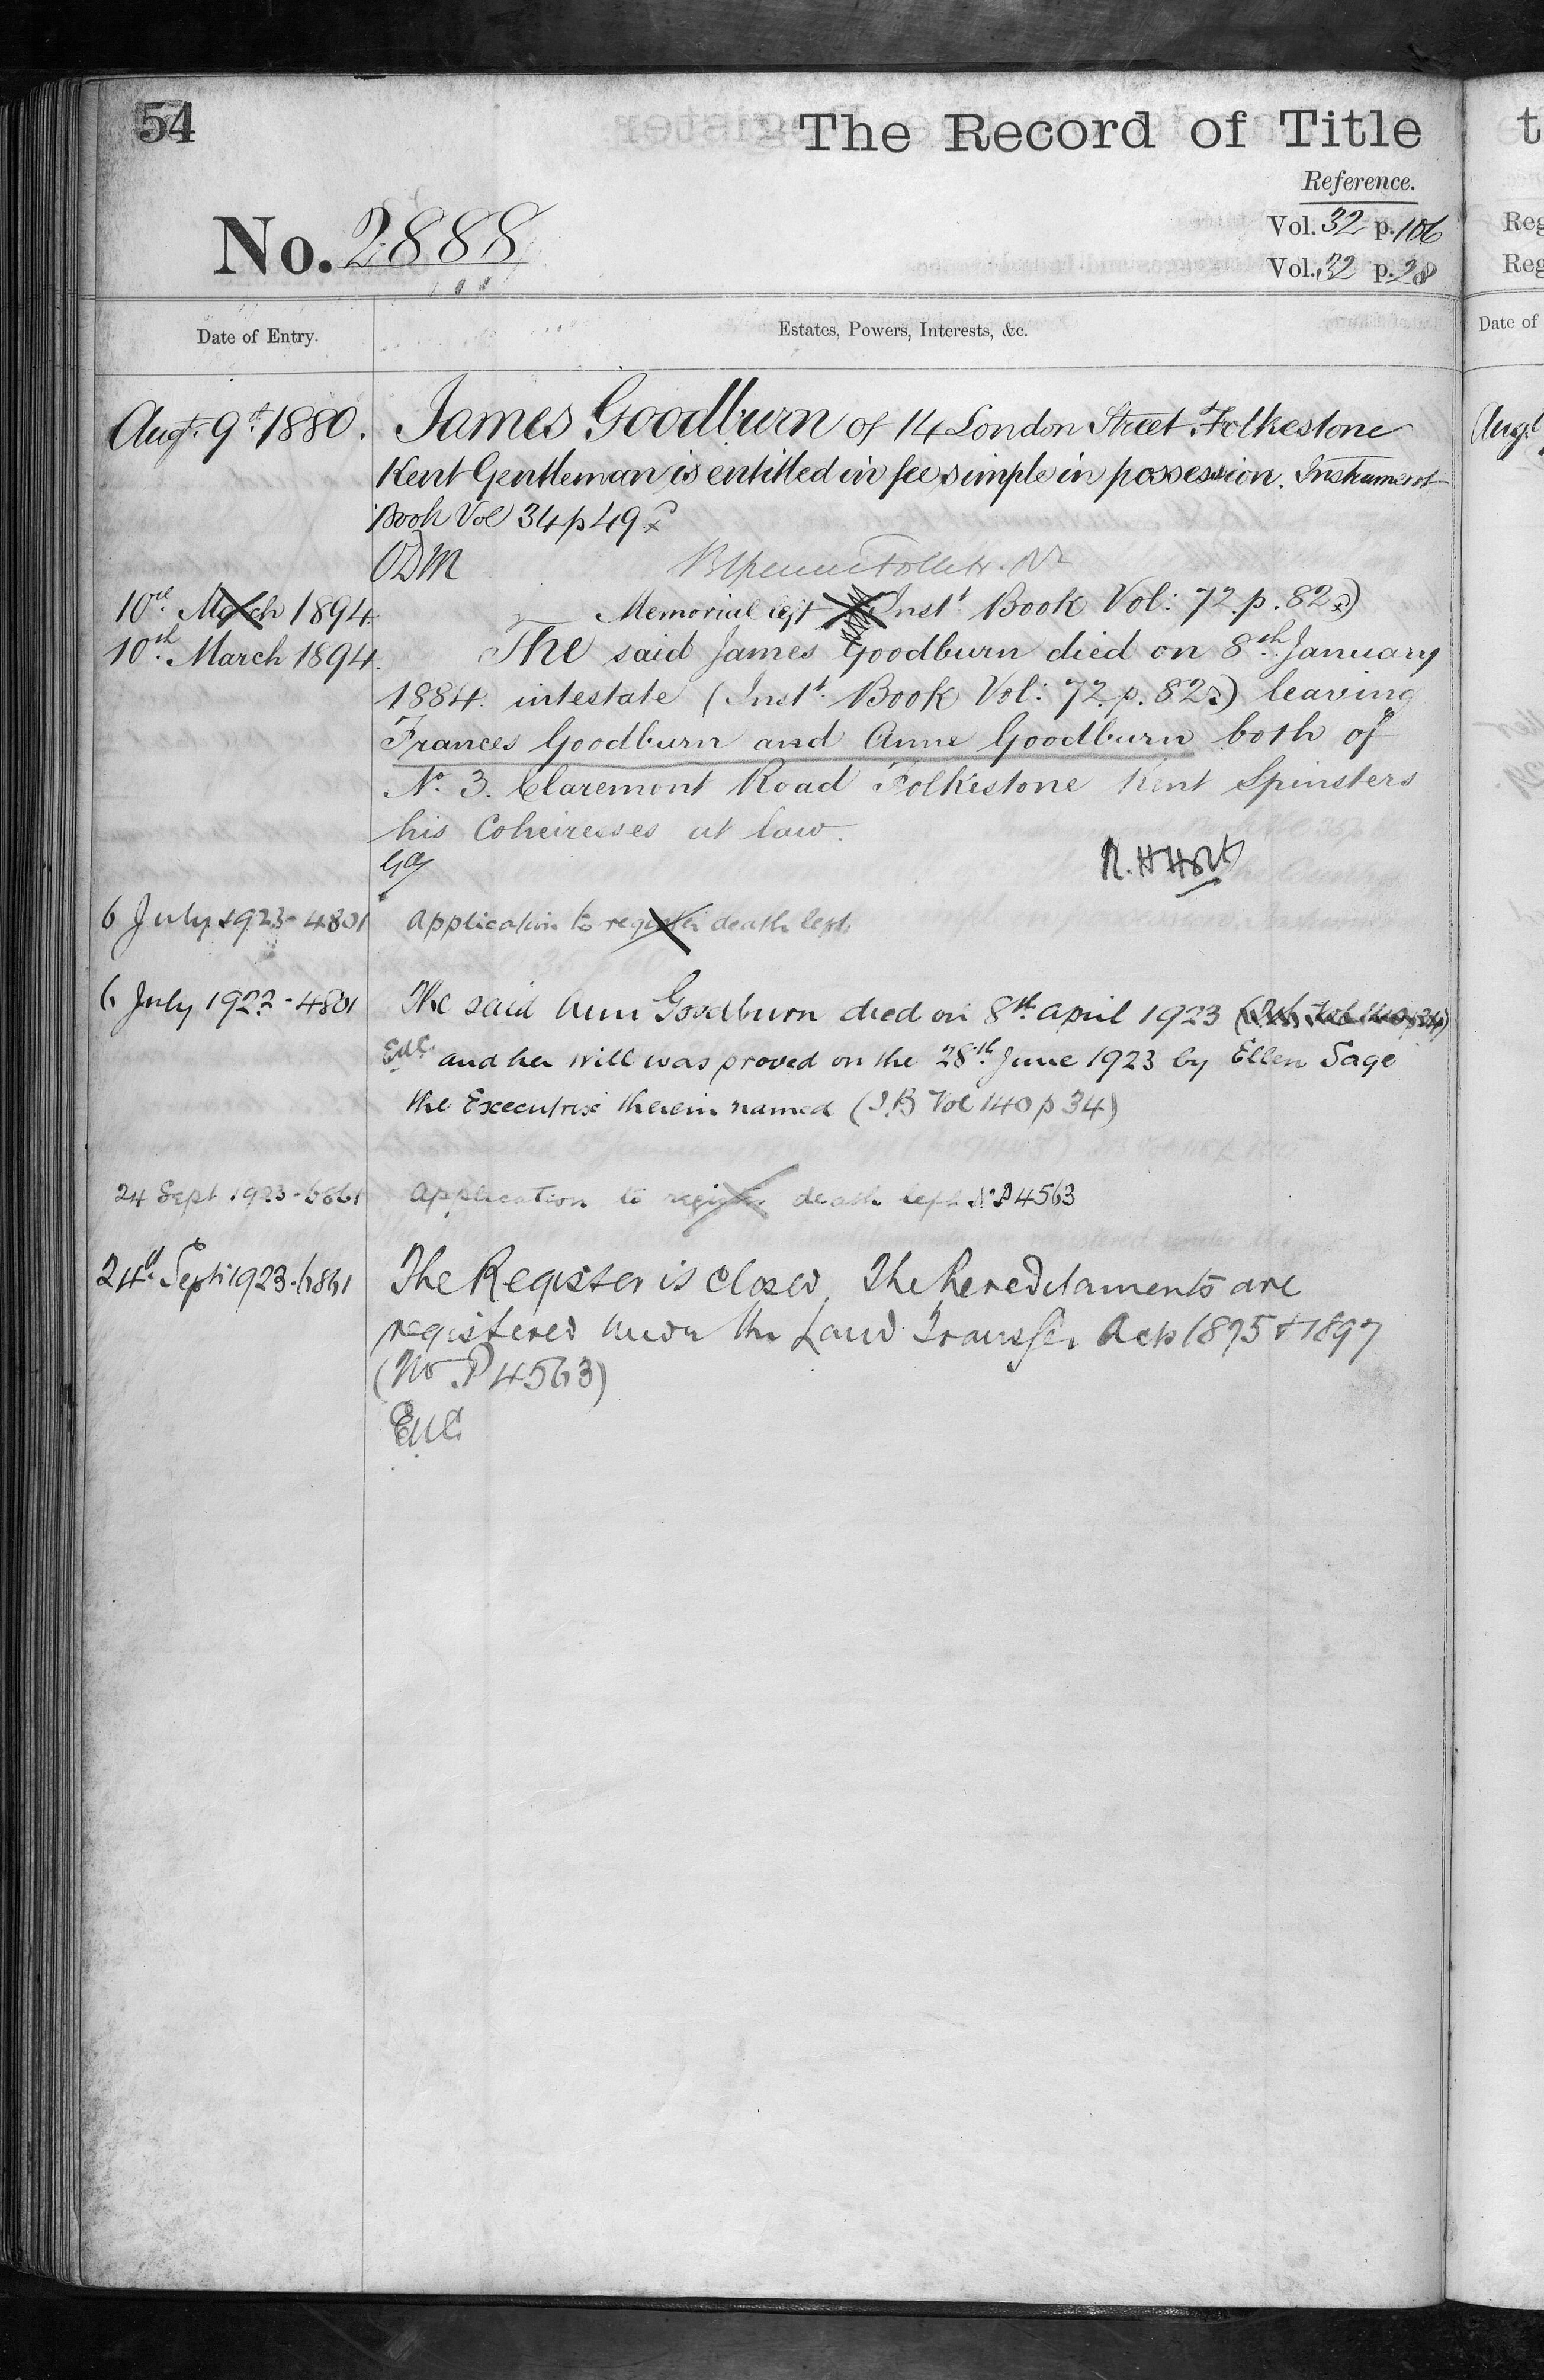 54
The Record of Title
Reference.
No. 2888
Vol. 32 p. 106
Vol. 32 p. 28
Date of Entry.
Estates, Powers, Interests, &c.
Augt. 9th 1880. James Goodburn of 14 London Street Folkestone
Kent Gentleman is entitled in fee simple in possession. Instrument
Book Vol 34 p 49
ODM
10th March 1894. Memorial left Inst. Book Vol: 72. p. 82
10th March 1894. The said James Goodburn died on 8th January
1884. intestate (Inst. Book Vol: 72. p. 82) leaving
Frances Goodburn and Anne Goodburn both of
No. 3. Claremont Road Folkestone Kent Spinsters
his Coheiresses at law.
6 July 1923 - 4801 Application to register death left
6 July 1923 - 4801 The said Ann Goodburn died on 8th April 1923
EMC and her will was proved on the 28th June 1923 by Ellen Sage
the Executrix therein named (I.B Vol 140 p 34)
24 Sept 1923 - 6861 Application to register death left No P4563
24th Sept 1923 - 6861 The Register is closed. The hereditaments are
registered under the Land Transfer Acts 1875 & 1897
(No P4563)
EMC
t
Reg
Reg
Date of
Augt